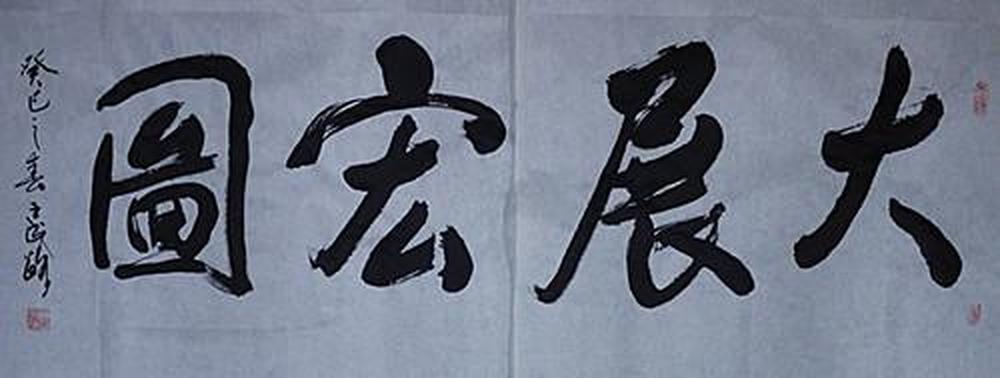 大展宏圖
癸巳之春